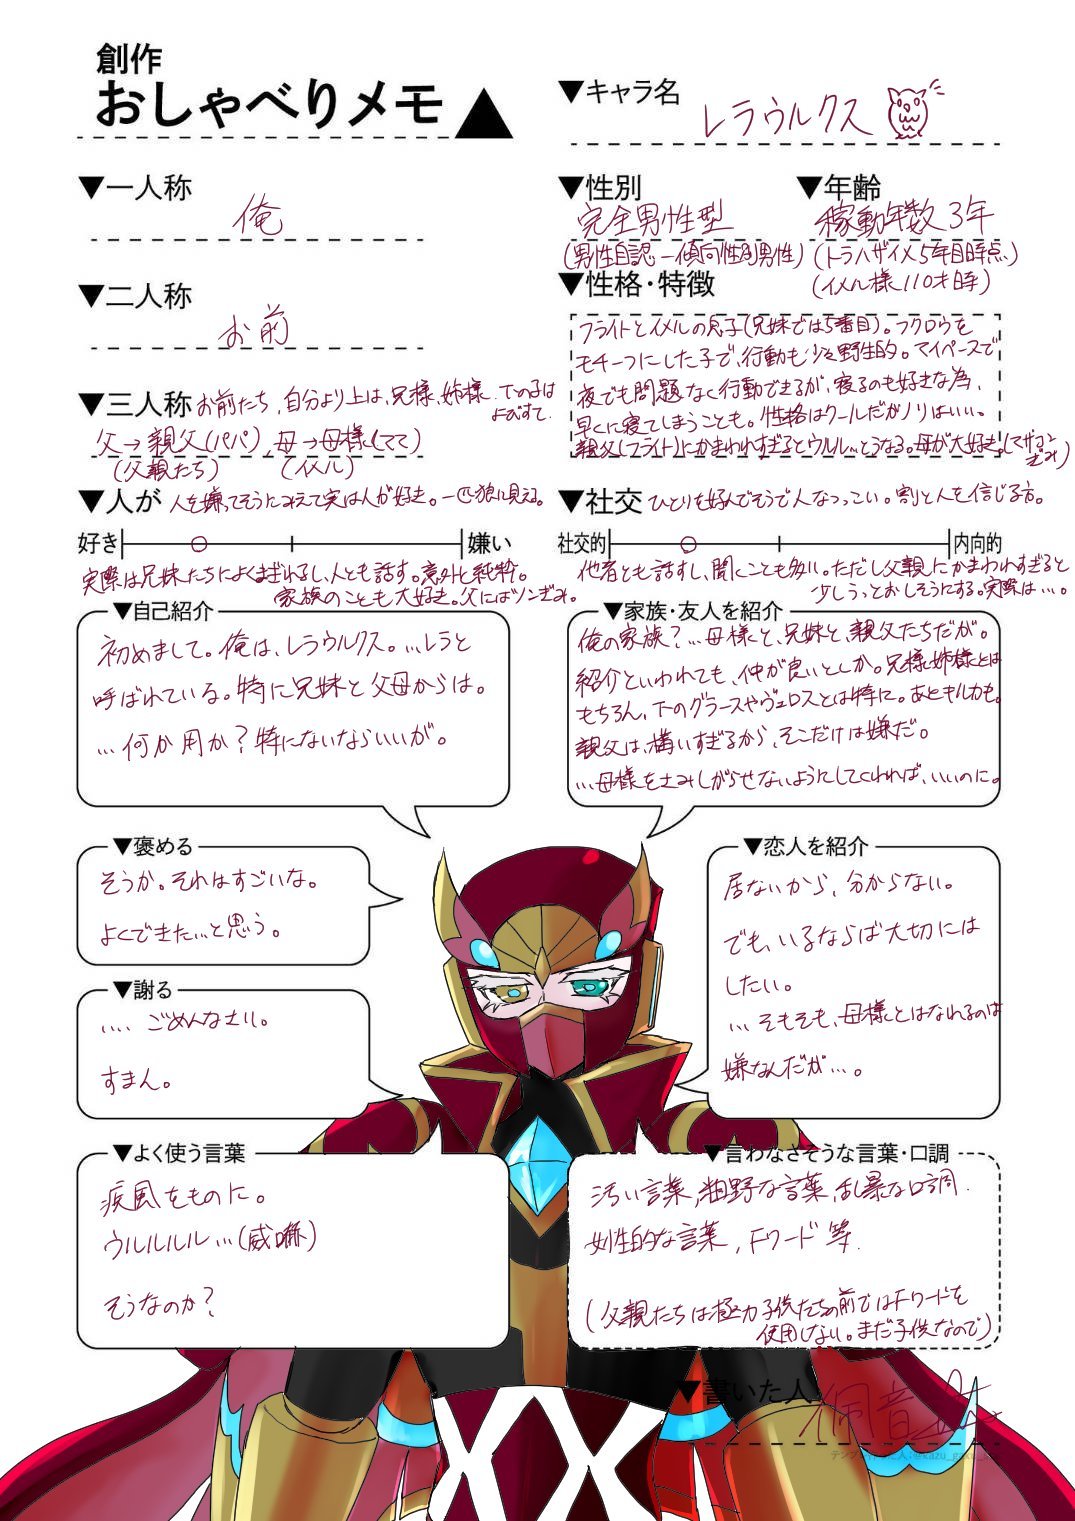 創作
おしゃべりメモ
▼キャラ名
レラウルクス
▼一人称
俺
▼性別
完全男性型
(男性自認 ー 傾向性別男性)
▼年齢
稼動年数3年
(トラハザイメ5年目時点)
(イメル様110才時)
▼二人称
お前
▼性格・特徴
フライトとイメルの息子(兄妹では5番目)。フクロウを
モチーフにした子で、行動も少々野生的。マイペースで
夜でも問題なく行動できるが、寝るのも好きな為、
早くに寝てしまうことも。性格はクールだがノリはいい。
親父(フライト)にかまわれすぎるとウルル…とうなる。母が大好き。(マザコン
ぎみ)
▼三人称
お前たち、自分より上は、兄様、姉様、下の子は
よびすて.
父→親父(パパ),母→母様(てて)
(父親たち)
(イメル)
▼人が
人を嫌ってそうにみえて実は人が好き。一匹狼に見える。
好き
嫌い
実際は兄妹たちによくまざれるし、人とも話す。意外と純粋。
家族のことも大好き。父にはツンぎみ。
▼社交
ひとりを好んでそうで人なつっこい。割と人を信じる方。
社交的
内向的
他者とも話すし、聞くことも多い。ただし父親にかまわれすぎると
少しうっとおしそうにする。実際は…。
▼自己紹介
初めまして。俺は、レラウルクス。…レラと
呼ばれている。特に兄妹と父母からは。
…何か用か?特にないならいいが。
▼家族・友人を紹介
俺の家族?…母様と、兄妹と、親父たちだが。
紹介といわれても、仲が良いとしか。兄様姉様とは
もちろん、下のグラースやヴェロスとは特に。あとキルカも。
親父は、構いすぎるから、そこだけは嫌だ。
…母様をさみしがらせないようにしてくれれば、いいのに。
▼褒める
そうか。それはすごいな。
よくできた…と思う。
▼恋人を紹介
居ないから、分からない。
でも、いるならば大切には
したい。
…そもそも、母様とはなれるのは
嫌なんだが…。
▼謝る
.... ごめんなさい。
すまん。
▼よく使う言葉
疾風をものに。
ウルルルル…(威嚇)
そうなのか?
▼言わなさそうな言葉・口調
汚い言葉,粗野な言葉,乱暴な口調.
女性的な言葉,Fワード等.
(父親たちは極力子供たちの前ではFワードを
使用しない。まだ子供なので)
▼書いた人